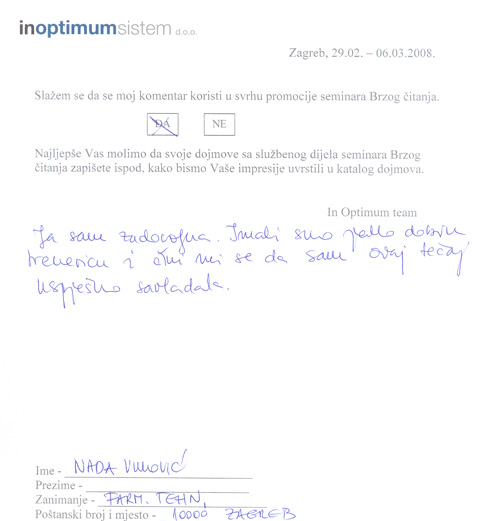 inoptimumsistem d.o.o.
Zagreb, 29.02. – 06.03.2008.
Slažem se da se moj komentar koristi u svrhu promocije seminara Brzog čitanja.
DA NE
Najljepše Vas molimo da svoje dojmove sa službenog dijela seminara Brzog
čitanja zapišete ispod, kako bismo Vaše impresije uvrstili u katalog dojmova.
In Optimum team
Ja sam zadovoljna. Imali smo jedno dobru
trenericu i čini mi se da sam ovaj tečaj
uspješno savladala.
Ime - NADA VUKOVIĆ
Prezime -
Zanimanje - FARM. TEHN,
Poštanski broj i mjesto - 10000 ZAGREB